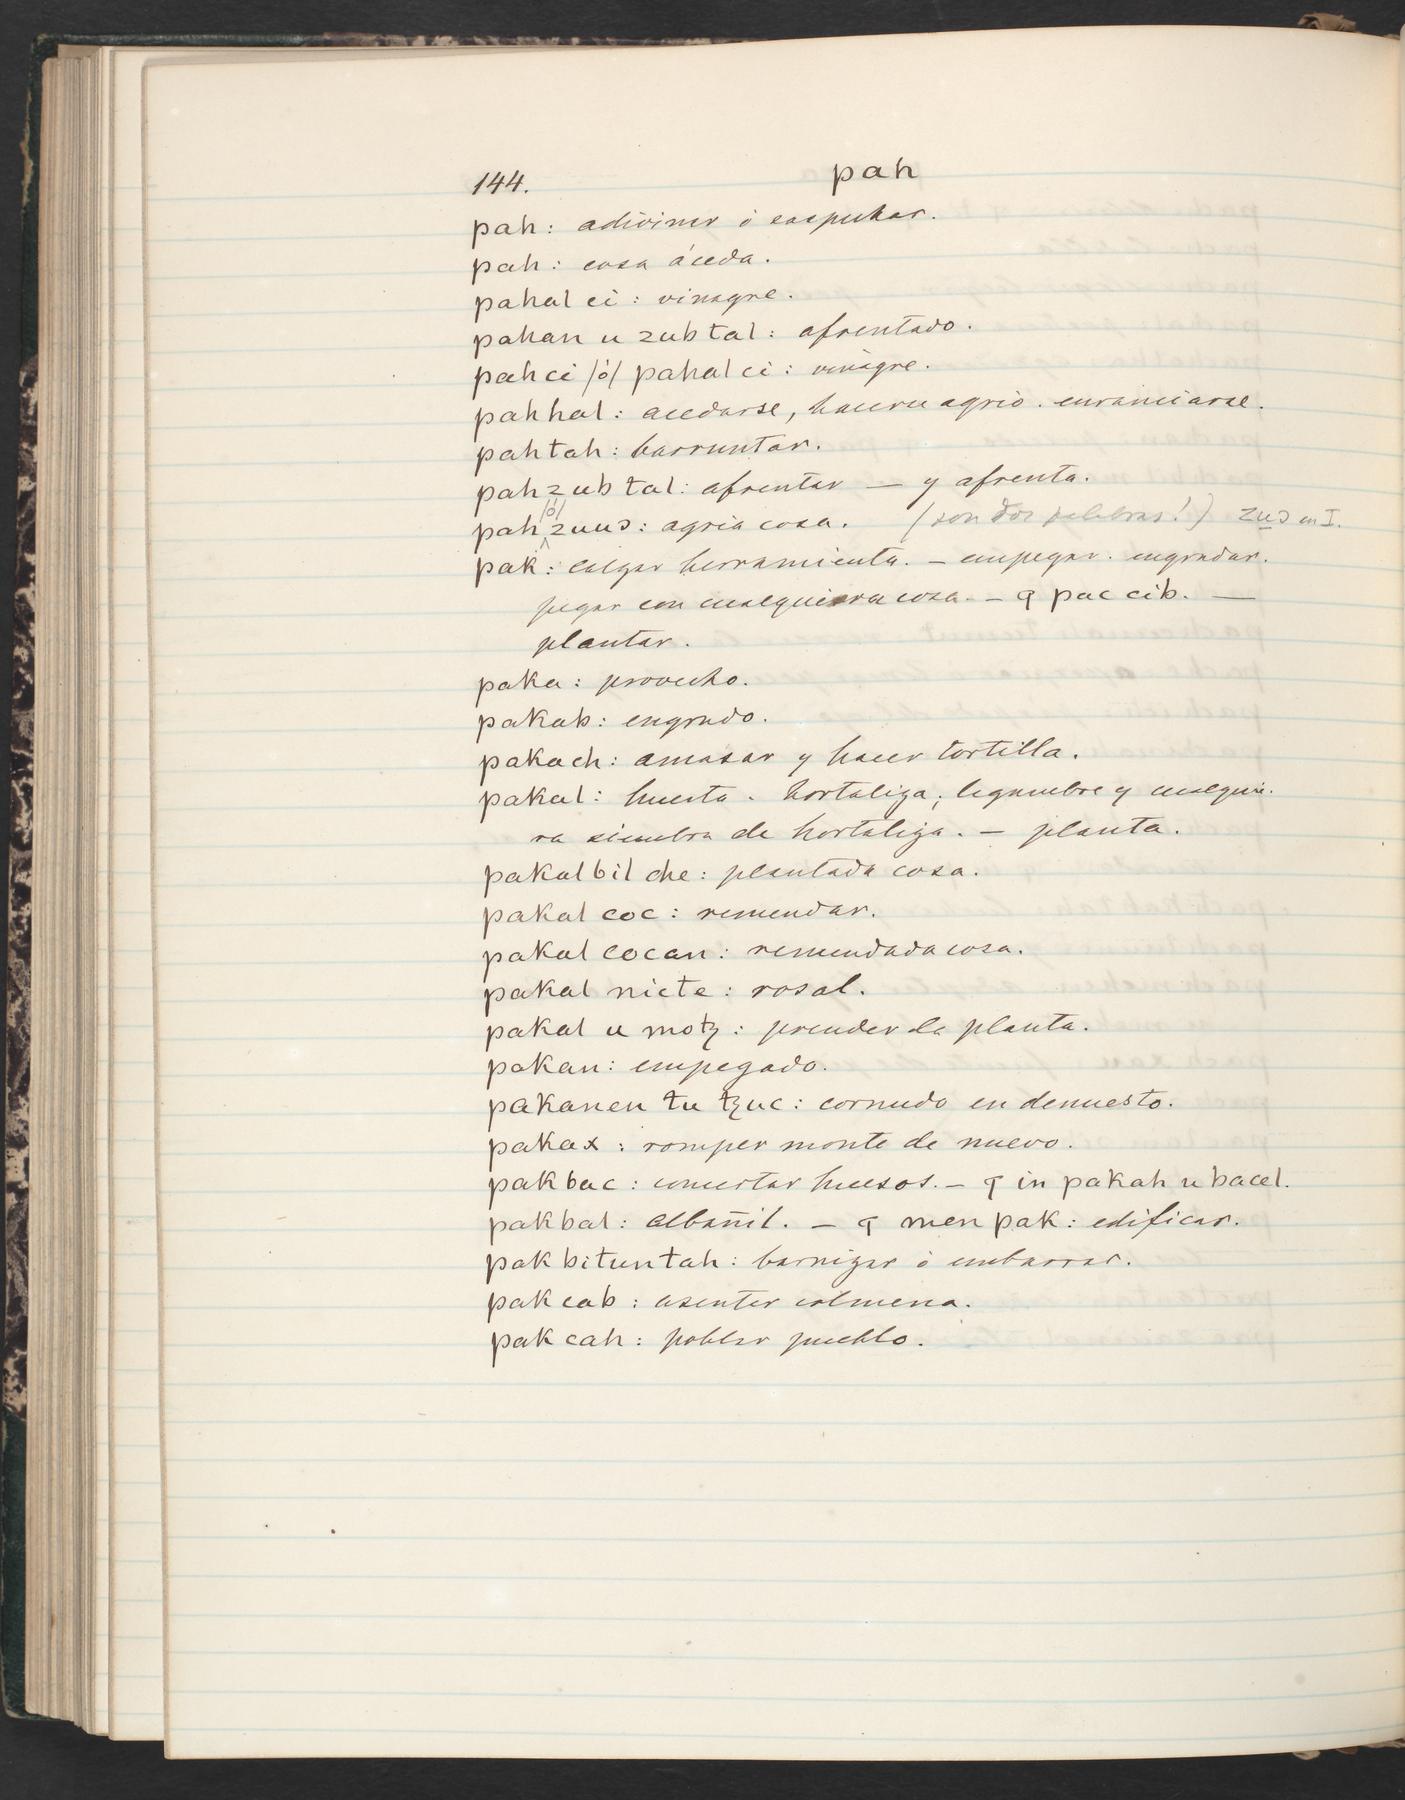 144. pah
pah: adivinar ó sospechar.
pah: cosa áceda.
pahal ci: vinagre.
pahan u zubtal: afrentado.
pah ci /ó/ pahal ci: vinagre.
pahhal: acedarse, hacerse agrio. enranciarse.
pahtah: barruntar.
pah zubtal: afrentar — y afrenta.
pah /ó/ zuuɔ: agria cosa. (son dos palabras!) zuɔ en I.
pak: calzar herramienta. – empegar. engrudar.
pegar con cualquiera cosa. – ꟼ pac cib. —
plantar.
paka: provecho.
pakab: engrudo.
pakach: amasar y hacer tortilla.
pakal: huerta. hortaliza; legumbre y cualquie-
ra siembra de hortaliza. – planta.
pakalbil che: plantada cosa.
pakal coc: remendar.
pakal cocan: remendada cosa.
pakal nicte: rosal.
pakal u motz: prender la planta.
pakan: empegado.
pakanen tu tzuc: cornudo en denuesto.
pakax: romper monte de nuevo.
pakbac: concertar huesos. – ꟼ in pakah u bacel.
pakbal: albañil. – ꟼ men pak: edificar.
pak bituntah: barnizar ó embarrar.
pak cab: asentar colmena.
pak cah: poblar pueblo.